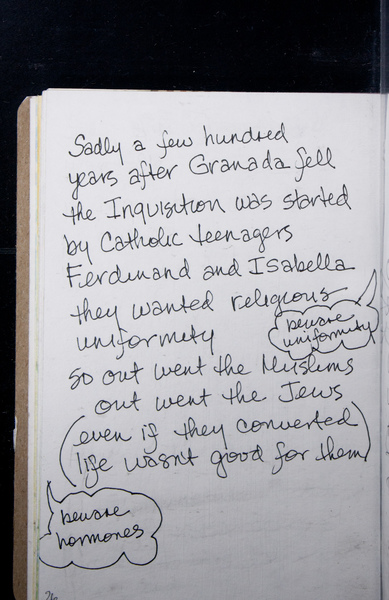 Sadly a few hundred
years after Granada fell
the Inquisition was started
by Catholic teenagers
Ferdinand and Isabella
they wanted religious
uniformity
beware
uniformity
so out went the Muslims
out went the Jews
(even if they converted
life wasnt good for them)
beware
hormones